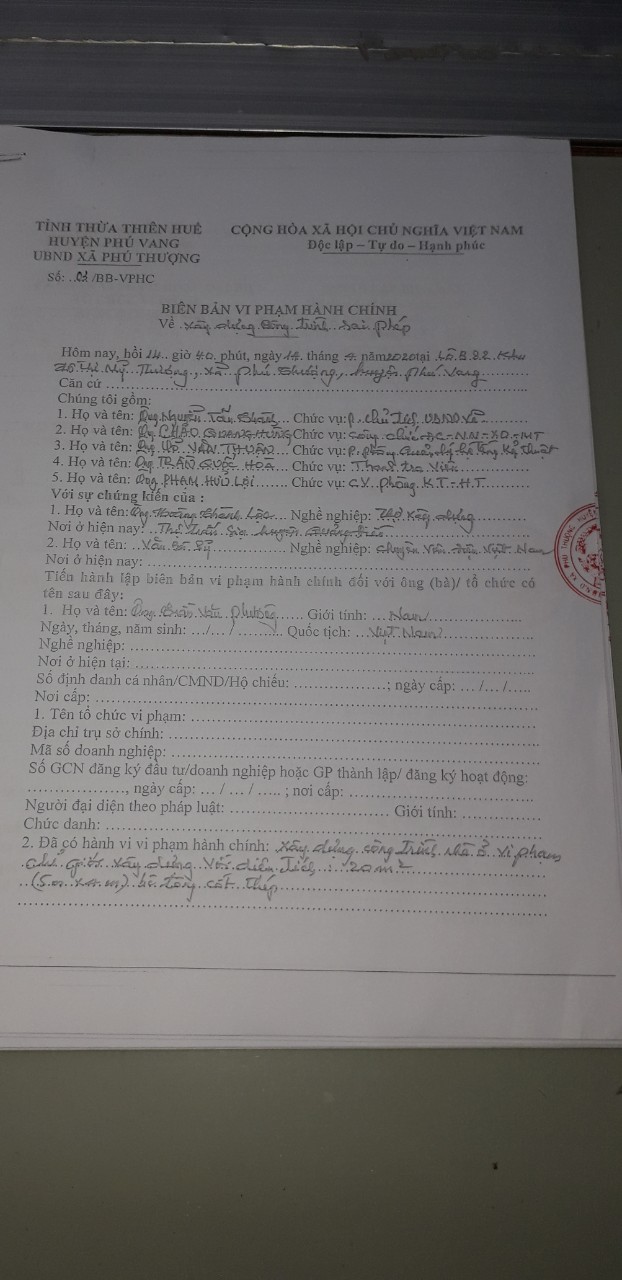 TỈNH THỪA THIÊN HUẾ
HUYỆN PHÚ VANG
UBND XÃ PHÚ THƯỢNG
Số: ..02 /BB-VPHC
CỘNG HÒA XÃ HỘI CHỦ NGHĨA VIỆT NAM
Độc lập – Tự do – Hạnh phúc
BIÊN BẢN VI PHẠM HÀNH CHÍNH
Về xây dựng công trình
Hôm nay, hồi 14.. giờ 40 phút, ngày 14 tháng năm 2020 tại Khu
Mỹ Thượng, xã Phú Thượng, huyện Phú Vang
Căn cứ
Chúng tôi gồm:
1. Họ và tên: Ông Nguyễn Chức vụ: P. Chủ tịch UBND xã
2. Họ và tên: QUANG HƯNG Chức vụ: Công chức ĐC-NN-XD-MT
3. Họ và tên: VĂN THUẬN Chức vụ: P. phòng Quản lý hạ tầng kỹ thuật
4. Họ và tên: Ông TRẦN QUỐC HOÀ Chức vụ: Thanh tra viên
5. Họ và tên: Ông PHẠM HỮU LỢI Chức vụ: CV phòng K.T-H.T
Với sự chứng kiến của :
1. Họ và tên: Ông Hoàng Thành Nghề nghiệp: Thợ xây dựng
Nơi ở hiện nay: huyện
2. Họ và tên: Nghề nghiệp: Việt Nam
Nơi ở hiện nay:
Tiến hành lập biên bản vi phạm hành chính đối với ông (bà)/ tổ chức có
tên sau đây:
1. Họ và tên: Ông Phương Giới tính: Nam
Ngày, tháng, năm sinh: .../.../ ........... Quốc tịch: Việt Nam
Nghề nghiệp:
Nơi ở hiện tại:
Số định danh cá nhân/CMND/Hộ chiếu: ..................; ngày cấp: ... /... /.....
Nơi cấp:
1. Tên tổ chức vi phạm:
Địa chỉ trụ sở chính:
Mã số doanh nghiệp:
Số GCN đăng ký đầu tư/doanh nghiệp hoặc GP thành lập/ đăng ký hoạt động:
..................., ngày cấp: ... / ... / ..... ; nơi cấp:
Người đại diện theo pháp luật: Giới tính:
Chức danh:
2. Đã có hành vi vi phạm hành chính: xây dựng công trình nhà ở vi phạm
chỉ giới xây dựng với diện tích : 20m²
bê tông cốt thép